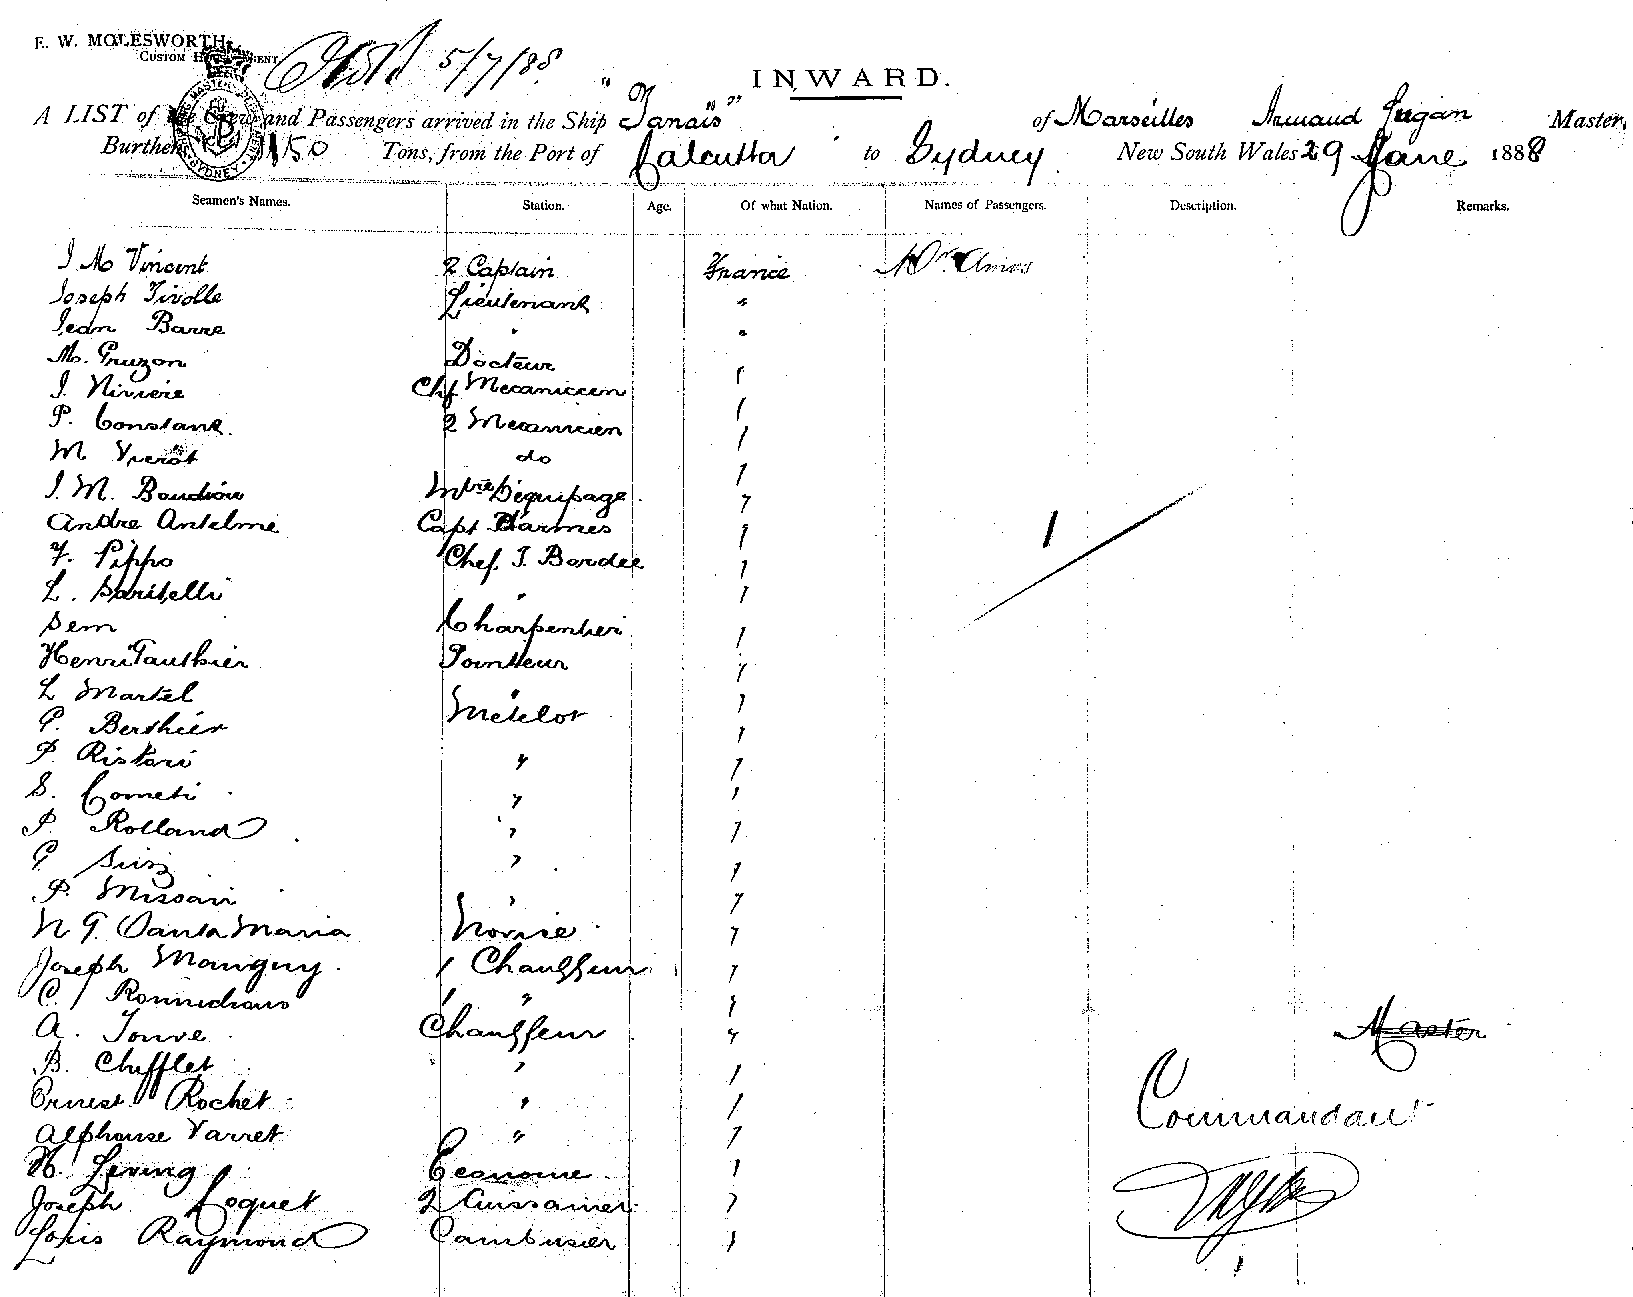 E. W. MOLESWORTH,
CUSTOM HOUSE AGENT
5/7/88
INWARD.
A LIST of the Crew and Passengers arrived in the Ship "Tanais" of Marseilles Armaud Jugan Master,
Burthen 1150 Tons, from the Port of Calcutta to Sydney New South Wales 29 June 1888
Seamen's Names. Station. Age. Of what Nation. Names of Passengers. Description. Remarks.
J M Vincent 2 Captain France Mr Amos
Joseph Tivolle Lieutenant "
Jean Barre " "
M. Gruzon Docteur "
J. Riviere Chf Mecanicien "
P. Constant 2 Mecanicien "
M do "
J. M. Baudion Mtre D'equipage "
Andre Antelme Capt D'armes " 1
F. Pippo Chef. J. Bordee "
L. Santelli " "
Sem Charpentier "
Henri Gauthier "
L Martel " "
P. Berthier Metelot "
P. Ristori " "
S. Cometi " "
P. Rolland " "
P " "
P. Missari " "
N G. Santa Maria Novise "
Joseph Manguy 1 Chauffeur "
C. 1 " "
A. Jouve Chauffeur " Master
B. Chifflet " "
Ernest Rochet " " Commandant
Alphonse Varret " "
Econome "
Joseph Coquet 2 Cuissinier "
Louis Raymond Cambusier "